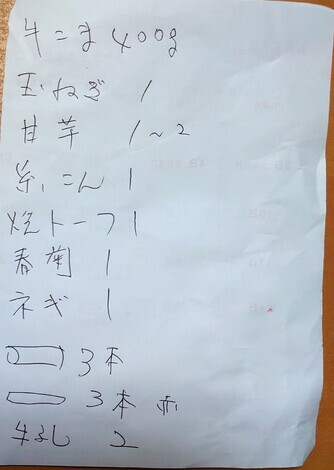 牛こま 400g
玉ねぎ 1
甘芋 1~2
糸こん 1
焼トーフ 1
春菊 1
ネギ 1
3本
3本 赤
牛乳 2